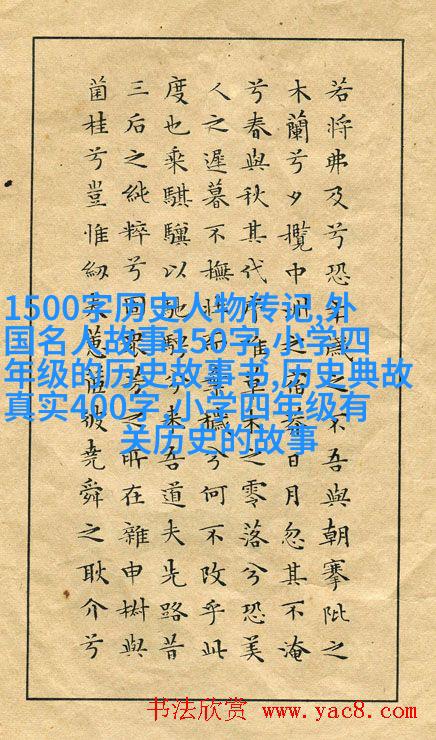 若將弗及兮恐年歲之不吾與朝搴阰之
木蘭兮夕攬中洲之宿莽日月忽其不淹
兮春與秋其代序惟草木之零落兮恐美
人之遲暮不撫壯而棄穢兮何不改乎此
度也乘騏驥以馳騁兮來吾道夫先路昔
三后之純粹兮固衆芳之所在雜申椒與
菌桂兮豈惟紉夫蕙茝彼堯舜之耿介兮
1500字历史人物传记,外
国名人故事150字,小学四
年级的历史故事书,历史典故
真实400字,小学四年级有
关历史的故事
书法欣赏 www.yac8.com